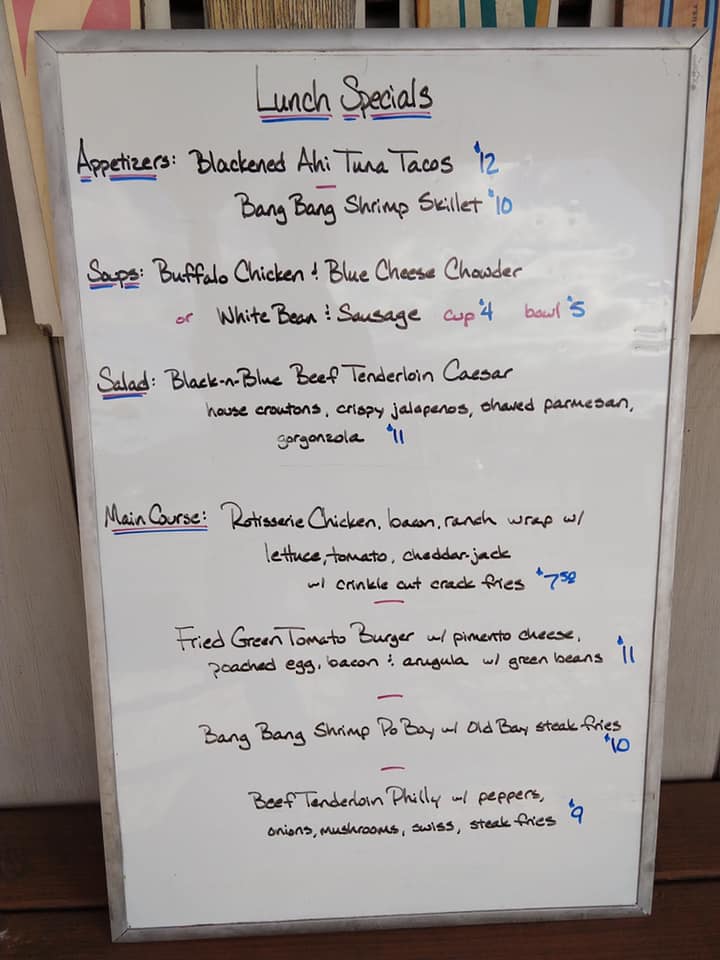 Lunch Specials
Appetizers: Blackened Ahi Tuna Tacos $12
Bang Bang Shrimp Skillet $10
Soups: Buffalo Chicken & Blue Cheese Chowder
or White Bean & Sausage cup $4 bowl $5
Salad: Black-n-Blue Beef Tenderloin Caesar
house croutons, crispy jalapenos, shaved parmesan,
gorgonzola $11
Main Course: Rotisserie Chicken, bacon, ranch wrap w/
lettuce, tomato, cheddar-jack
w/ crinkle cut crack fries $7.50
Fried Green Tomato Burger w/ pimento cheese,
poached egg, bacon & arugula w/ green beans $11
Bang Bang Shrimp Po Boy w/ Old Bay steak fries
$10
Beef Tenderloin Philly w/ peppers,
onions, mushrooms, swiss, steak fries $9